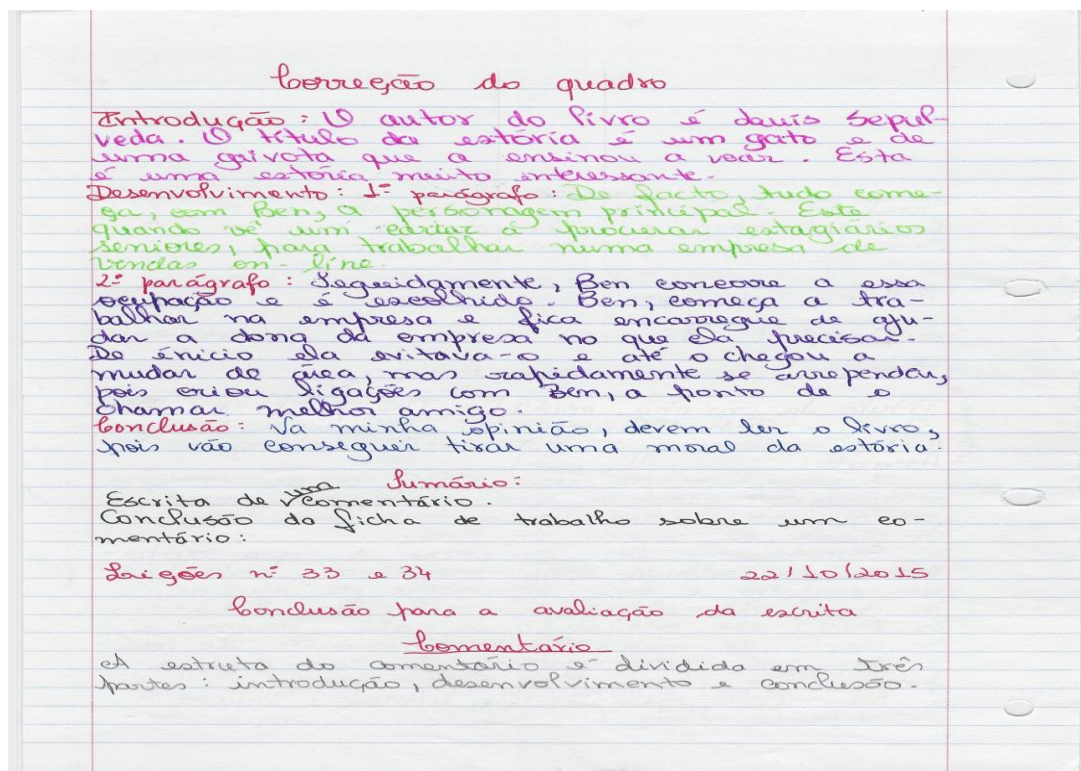 Correção do quadro
Introdução: O autor do livro é Luis Sepul-
veda. O título da estória é um gato e de
uma gaivota que a ensinou a voar. Esta
é uma estória muito interessante.
Desenvolvimento: 1º parágrafo: De facto, tudo come-
ça, com Ben, a personagem principal. Este
quando vê um cartaz a procurar estagiários
seniores, para trabalhar numa empresa de
vendas on-line.
2º parágrafo: Seguidamente, Ben concorre a essa
ocupação e é escolhido. Ben, começa a tra-
balhar na empresa e fica encarregue de aju-
dar a dona da empresa no que ela precisar.
De ínicio ela evitava-o e até o chegou a
mudar de área, mas rapidamente se arrependeu,
pois criou ligações com Ben, a ponto de o
chamar melhor amigo.
Conclusão: Na minha opinião, devem ler o livro,
pois vão conseguir tirar uma moral da estória.
Sumário:
Escrita de um comentário.
Conclusão da ficha de trabalho sobre um co-
mentário:
Lições nº 33 e 34 22/10/2015
Conclusão para a avaliação da escrita
Comentário
A estruta do comentário é dividida em três
partes: introdução, desenvolvimento e conclusão.